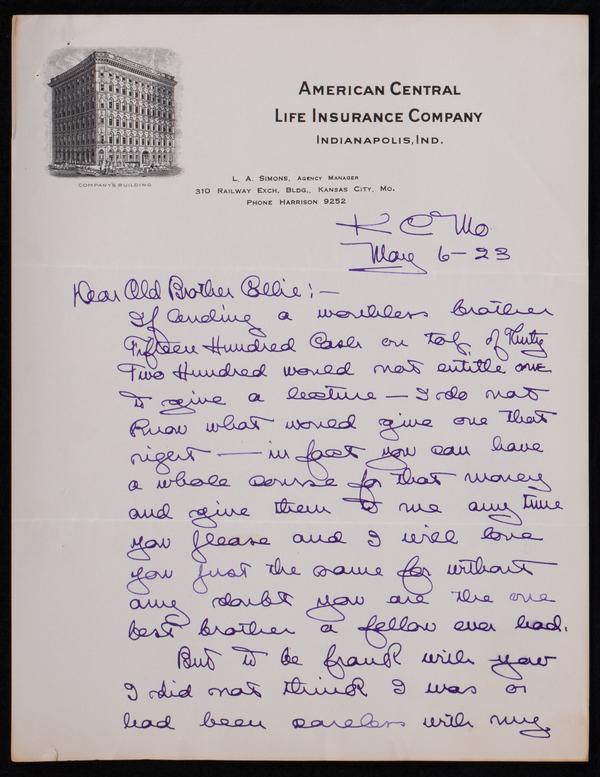 AMERICAN CENTRAL
LIFE INSURANCE COMPANY
INDIANAPOLIS, IND.
COMPANY'S BUILDING
L. A. SIMONS, AGENCY MANAGER
310 RAILWAY EXCH. BLDG., KANSAS CITY, MO.
PHONE HARRISON 9252
K C Mo
May 6-23
Dear Old Brother Ollie:-
If lending a worthless brother
Fifteen Hundred Cash on top of Thirty
Two Hundred would not entitle one
to give a lecture - I do not
know what would give one that
right - in fact you can have
a whole course for that money
and give them to me any time
you please and I will love
you just the same for without
any doubt you are the one
best brother a fellow ever had.
But to be frank with you
I did not think I was or
had been careless with my